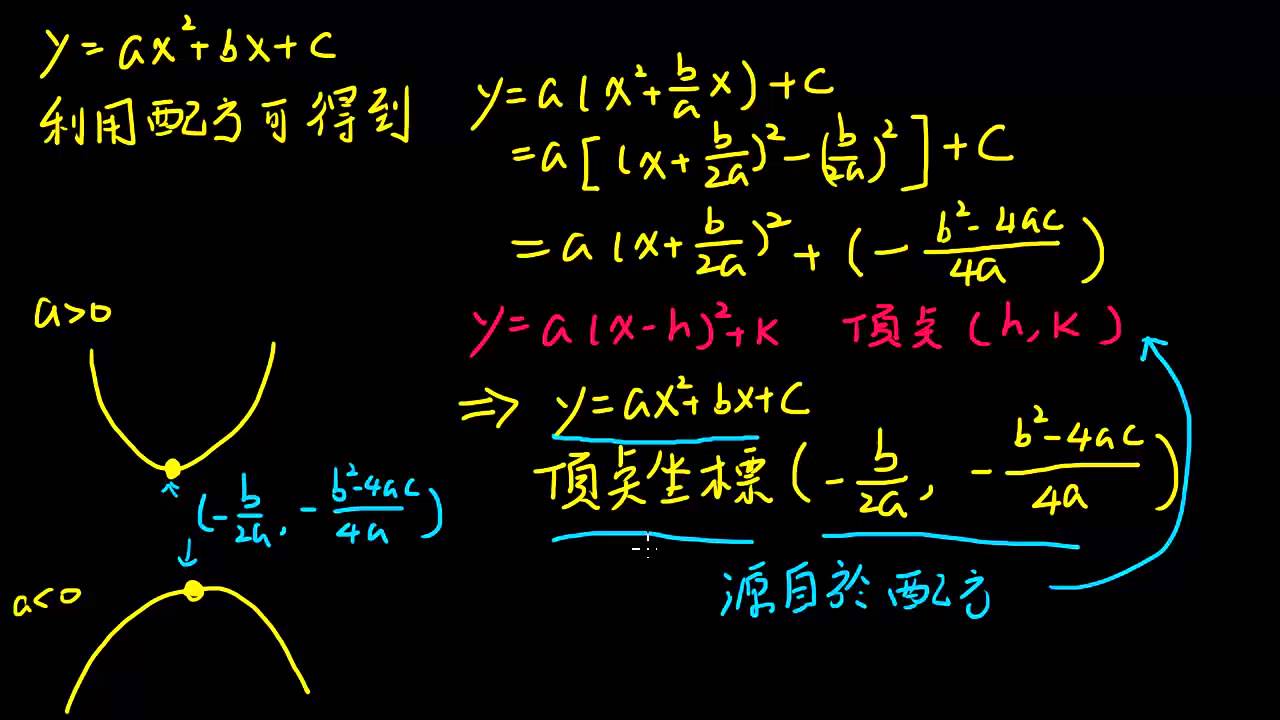 y=ax²+bx+c
利用配方可得到
y=a(x²+\frac{b}{a}x)+c
=a[(x+\frac{b}{2a})²-(\frac{b}{2a})²]+c
=a(x+\frac{b}{2a})²+(-\frac{b²-4ac}{4a})
y=a(x-h)²+k 頂点(h,k)
⇒ y=ax²+bx+c
頂点坐標(-\frac{b}{2a}, -\frac{b²-4ac}{4a})
源自於配方
a>0
(-\frac{b}{2a}, -\frac{b²-4ac}{4a})
a<0